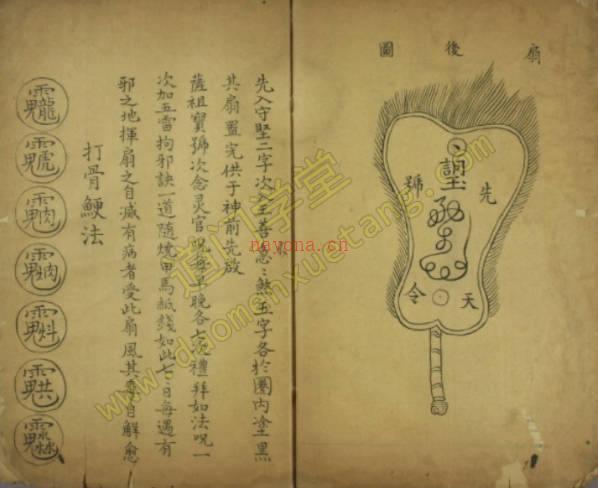 扇後圖
先號
天令
先入守堅二字次入王善惡〻煞五字各於圈內塗黑
其扇置完供于神前先啟
薩祖寶號次念灵官咒每早晚各七次禮拜如法咒一
次加五雷拘邪訣一道隨燒甲馬紙錢如此七〻日每遇有
邪之地揮扇之自滅有病者受此扇風其毒自解愈
打骨鯁法
道门学堂
www.daomenxuetang.com
nayona.cn